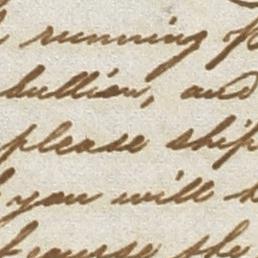 running
bullion, and
please ship
you will
course the